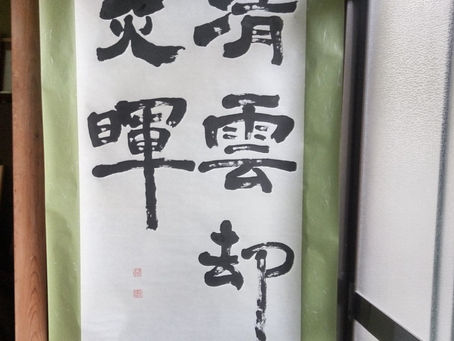 清雲却
炎暉